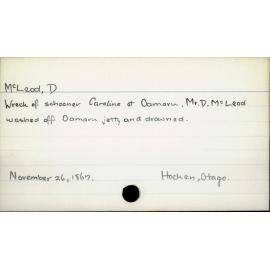 McLeod, D
Wreck of schooner Caroline at Oamaru. Mr. D. McLeod
washed off Oamaru jetty and drowned.
November 26, 1867.
Hocken, Otago.